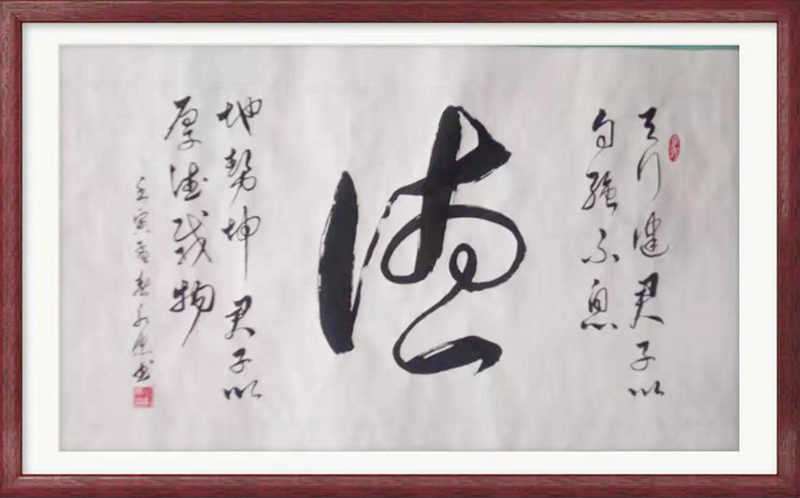 天行健君子以
自强不息
德
地势坤君子以
厚德载物
壬寅孟春